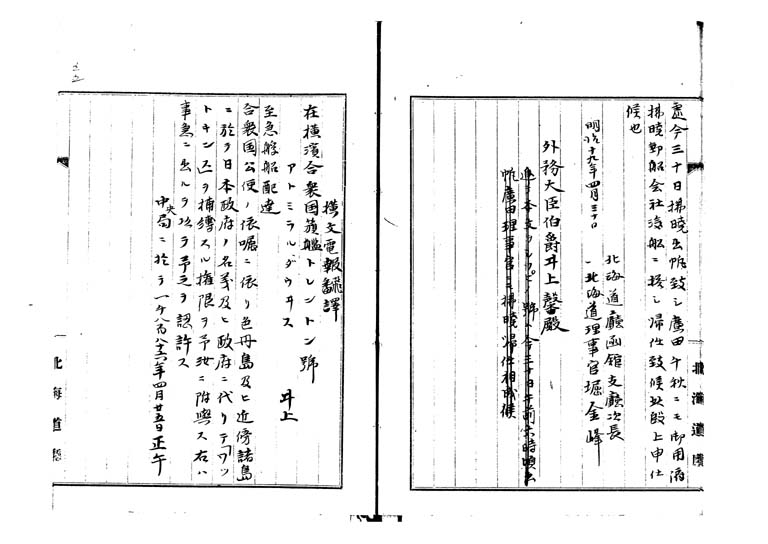 處今三十日拂暁出帆致シ廣田千秋ニモ御用済
拂暁郵船会社滊船ニ搭シ帰任致候此段上申仕
候也
明治十九年四月三十日
北海道廳函館支廳次長
北海道理事官堀金峰
外務大臣伯爵井上馨殿
進テ本文 号ハ今三十日午前六時頃出
帆廣田理事官ニモ拂暁帰任相成候
北海道廳
横文電報飜譯
在横濱合衆国旗艦トレントン號
アトミラルダウヰス
井上
至急艀船配達
合衆国公使ノ依嘱ニ依リ色丹島及ヒ近傍諸島
ニ於テ日本政府ノ名義及ヒ政府ニ代リテ「ワッ
トキンスヲ捕縛スル権限ヲ予汝ニ附與ス右ハ
事急ニ出ルヲ以テ予之ヲ認許ス
中央局ニ於テ一千八百八十六年四月廿五日正午
北海道廳